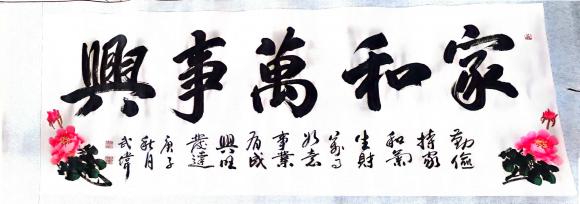 家和萬事興
勤儉
持家
和氣
生財
萬事
如意
事業
有成
興旺
發達
庚子
秋月
武偉